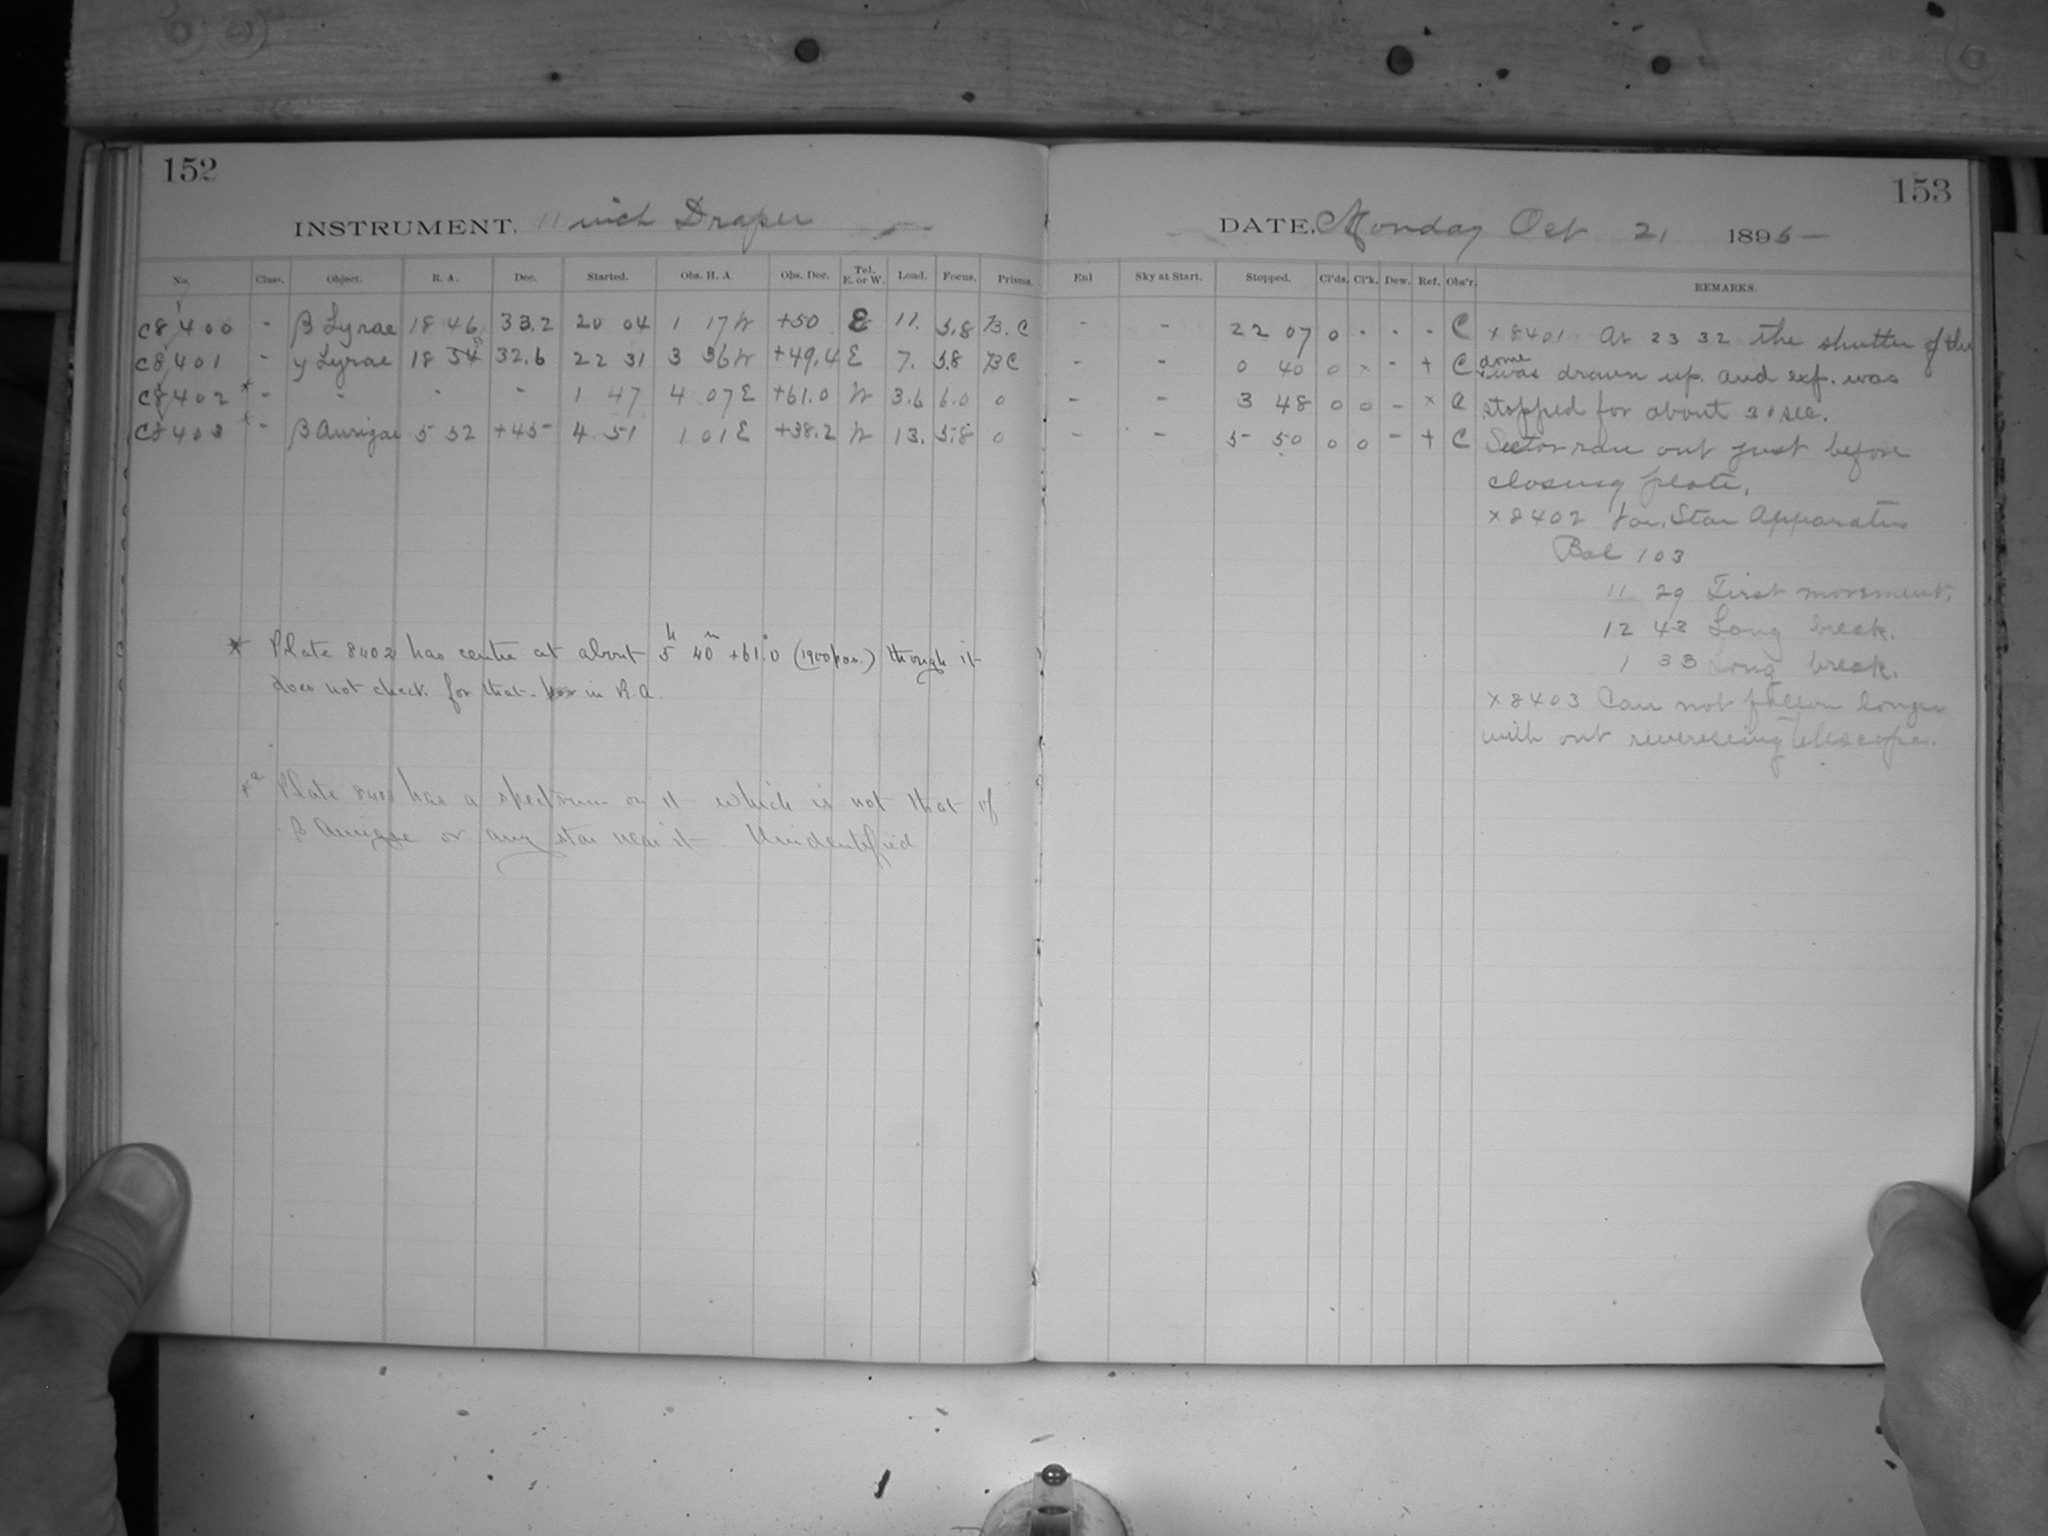 152
INSTRUMENT. 11 inch Draper
No. Class. Object. R. A. Dec. Started. Obs. H. A. Obs. Dec. Tel. E. or W. Load. Focus. Prisms.
C8400 - β Lyrae 18 46 33.2 20 04 1 17 W +50 E 11. 5.8 B.C
C8401 - γ Lyrae 18 54 32.6 22 31 3 36 W +49.4 E 7. 5.8 BC
C8402 * - - - - 1 47 4 07 E +61.0 W 3.6 6.0 0
C8403 * - β Aurigae 5 52 +45 4 51 1 01 E +38.2 W 13. 5.8 0
* Plate 8402 has centre at about 5h 40m +61°.0 (1900 pos.) though it
does not check for that in R.A.
*a Plate 8403 has a spectrum on it which is not that of
β Aurigae or any star near it. Unidentified
153
DATE, Monday Oct 21 1895
Enl Sky at Start. Stopped. Cl'ds. Cl'k. Dew. Ref. Obs'r. REMARKS.
- - 22 07 0 - - - C
- - 0 40 0 x - + C
- - 3 48 0 0 - x C
- - 5 50 0 0 - + C
x 8401 At 23 32 the shutter of the
dome was drawn up and exp. was
stopped for about 30 sec.
Sector ran out just before
closing plate.
x 8402 Star Apparatus
Bal 103
11 29 First movement.
12 43 Long break.
1 33 Long break.
x 8403 Can not follow longer
with out reverseing telescope.